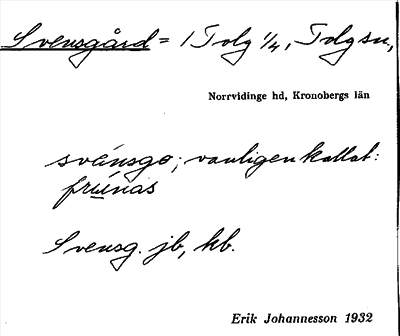 Svensgård = 1 Tolg 1/4, Tolg sn,
Norrvidinge hd, Kronobergs län
svänsgo; vanligen kallat:
frúnas
Svensg. jb, kb.
Erik Johannesson 1932